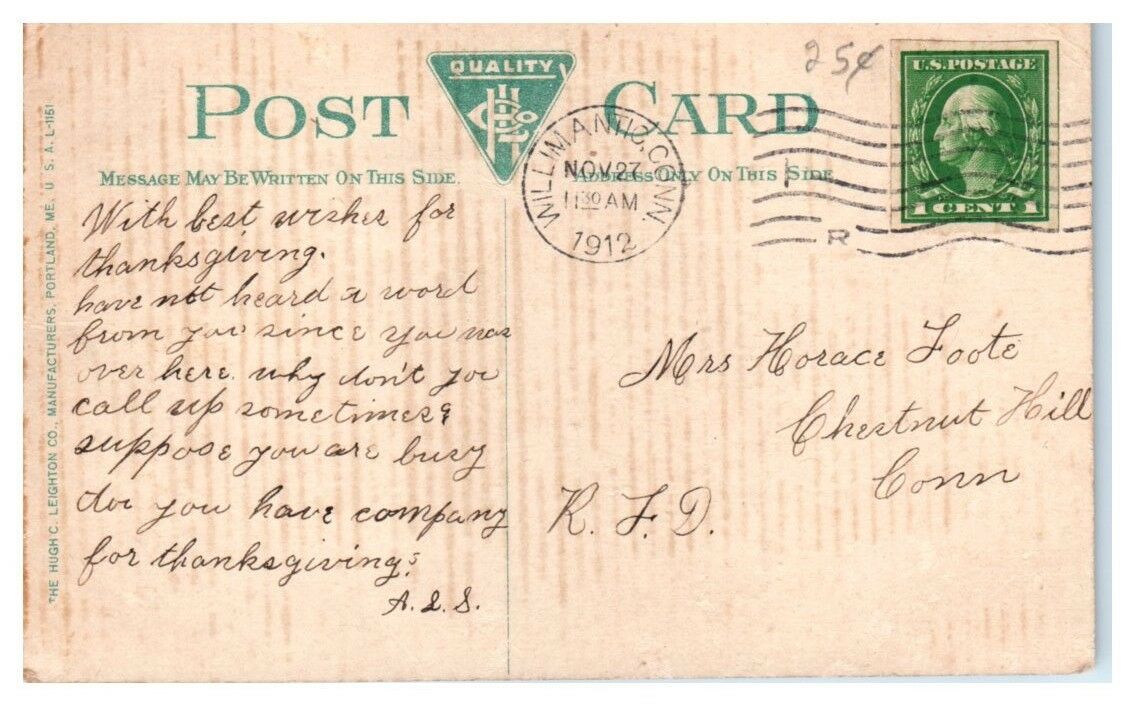 25¢
U.S. POSTAGE
1 CENT 1
QUALITY
POST CARD
MESSAGE MAY BE WRITTEN ON THIS SIDE.
ADDRESS ONLY ON THIS SIDE
WILLIMANTIC, CONN.
NOV 27
11 30 AM
1912
R
With best wishes for
thanksgiving.
have not heard a word
from you since you was
over here. why don't you
call up sometimes
suppose you are busy
do you have company
for thanksgiving?
A. L. S.
Mrs Horace Foote
Chestnut Hill
Conn
R. F. D.
THE HUGH C. LEIGHTON CO., MANUFACTURERS, PORTLAND, ME. U. S. A. L-1151